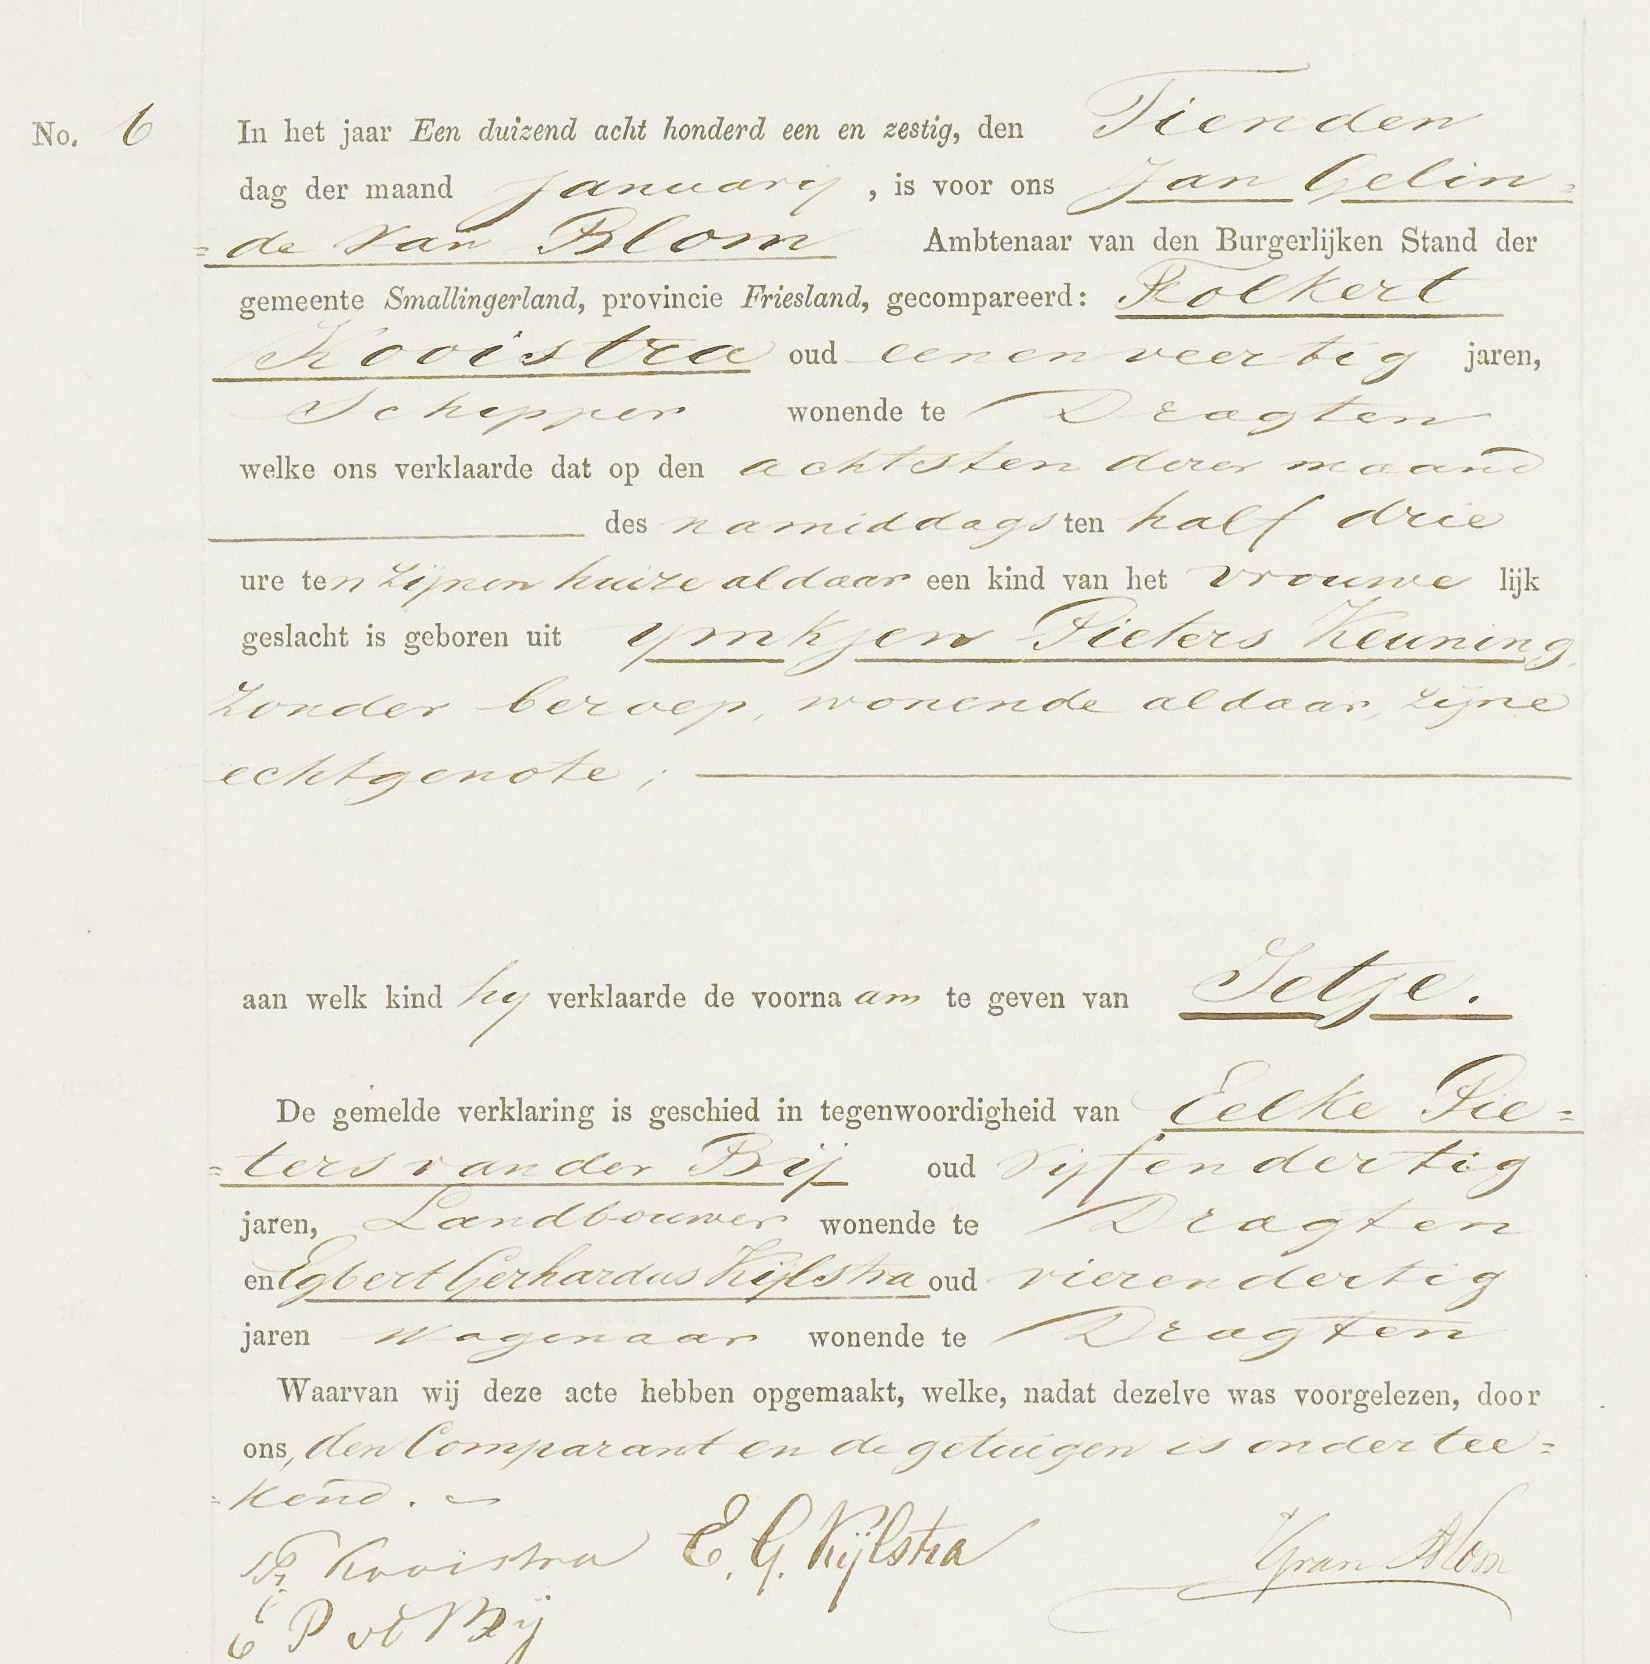 No. 6 In het jaar Een duizend acht honderd een en zestig, den Tienden
dag der maand January, is voor ons Jan Gelin=
=de van Blom Ambtenaar van den Burgerlijken Stand der
gemeente Smallingerland, provincie Friesland, gecompareerd: Folkert
Kooistra oud eenenveertig jaren,
Schipper wonende te Dragten
welke ons verklaarde dat op den achtsten dezer maand
des namiddags ten half drie
ure ten zijnen huize aldaar een kind van het vrouwelijk
geslacht is geboren uit Ymkjen Pieters Keuning,
zonder beroep, wonende aldaar, zijne
echtgenote;
aan welk kind hy verklaarde de voornaam te geven van Jetje.
De gemelde verklaring is geschied in tegenwoordigheid van Eelke Pie=
=ters van der Bij oud vijfendertig
jaren, Landbouwer wonende te Dragten
en Egbert Gerhardus Kijlstra oud vierendertig
jaren Wagenaar wonende te Dragten
Waarvan wij deze acte hebben opgemaakt, welke, nadat dezelve was voorgelezen, door
ons, den Comparant en de getuigen is ondertee=
=kend.
F. Kooistra E. G. Kijlstra JGvan Blom
E P vd Bij